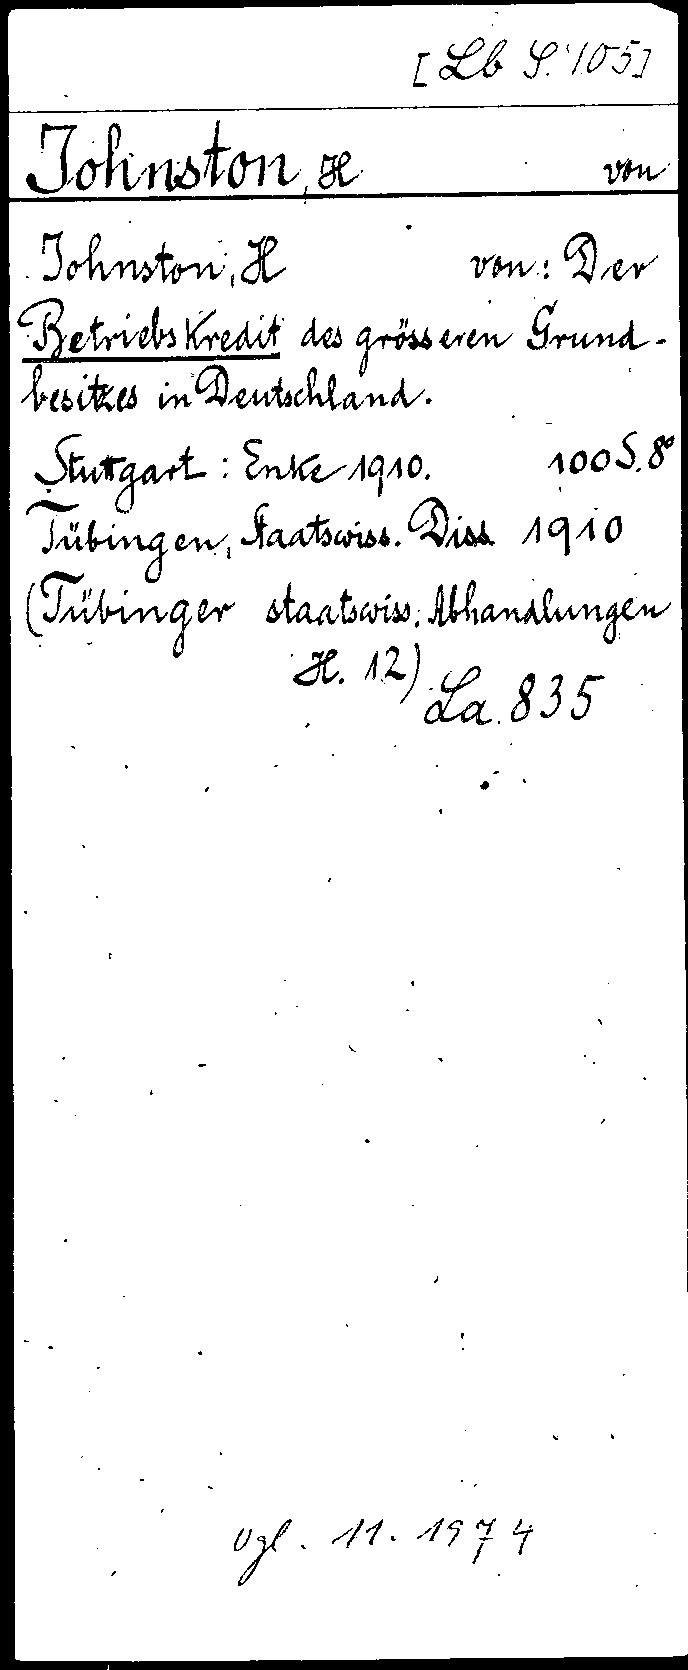 [Lb S. 105]
Johnston, H von
Johnston, H von: Der
Betriebskredit des grösseren Grund-
besitzes in Deutschland.
Stuttgart: Enke 1910. 100 S. 8°
Tübingen, Staatswiss. Diss. 1910
(Tübinger staatswiss. Abhandlungen
H. 12)
La 835
vgl. 11. 1974